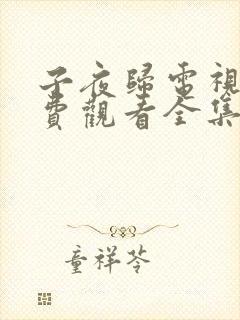 子夜歸電視
費觀看全集
童祥苓